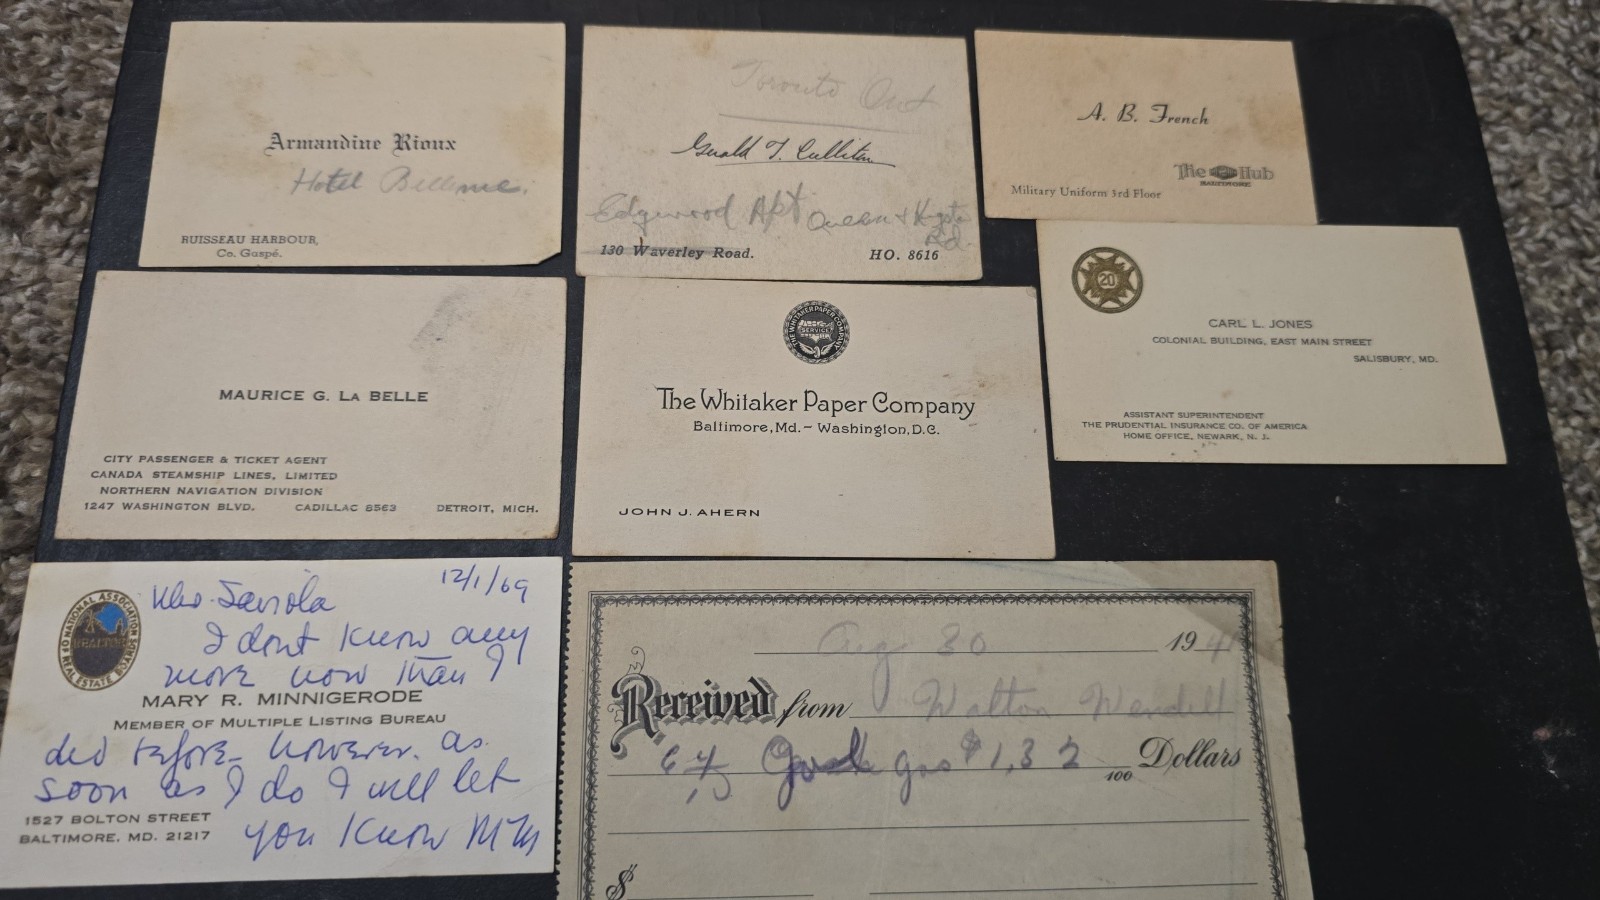 Armandine Rioux
Hotel
RUISSEAU HARBOUR,
Co. Gaspé.
Toronto Ont
Gerald T. Culliton
Edgewood Apt Queen & Kingston
Rd.
130 Waverley Road. HO. 8616
A. B. French
The Hub
BALTIMORE
Military Uniform 3rd Floor
MAURICE G. LA BELLE
CITY PASSENGER & TICKET AGENT
CANADA STEAMSHIP LINES, LIMITED
NORTHERN NAVIGATION DIVISION
1247 WASHINGTON BLVD. CADILLAC 8563 DETROIT, MICH.
THE WHITAKER PAPER COMPANY
SERVICE
The Whitaker Paper Company
Baltimore, Md. – Washington, D.C.
JOHN J. AHERN
20
CARL L. JONES
COLONIAL BUILDING, EAST MAIN STREET
SALISBURY, MD.
ASSISTANT SUPERINTENDENT
THE PRUDENTIAL INSURANCE CO. OF AMERICA
HOME OFFICE, NEWARK, N. J.
12/1/69
NATIONAL ASSOCIATION OF REAL ESTATE BOARDS
REALTOR
I dont know any
more now than I
MARY R. MINNIGERODE
MEMBER OF MULTIPLE LISTING BUREAU
did before however. as
soon as I do I will let
1527 BOLTON STREET
BALTIMORE, MD. 21217
you know MRM
Aug 30 1941
Received from Walton Wendell
gas $1.32 100 Dollars
$